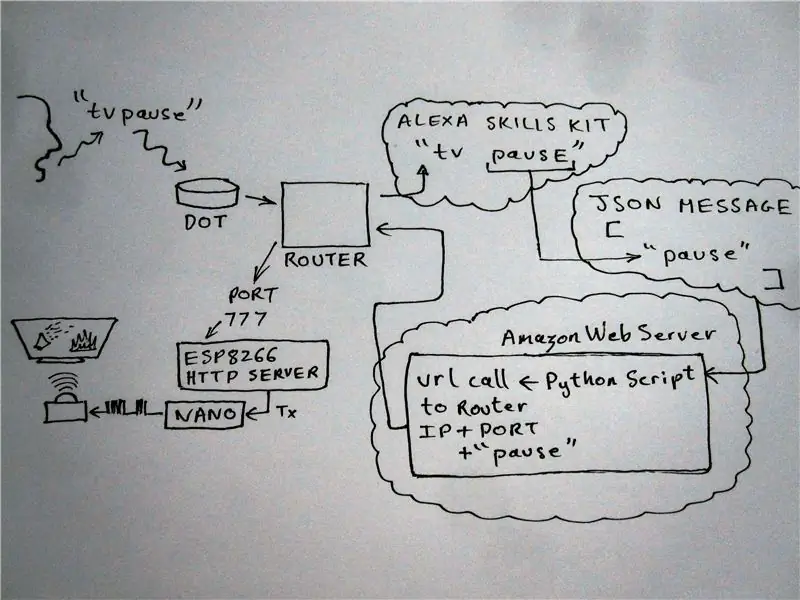 "tv pause"
DOT
ROUTER
ALEXA SKILLS KIT
"tv pause"
JSON MESSAGE
[
"pause"
]
Amazon Web Server
url call ← Python Script
to Router
IP + PORT
+ "pause"
PORT
777
ESP8266
HTTP SERVER
Tx
NANO